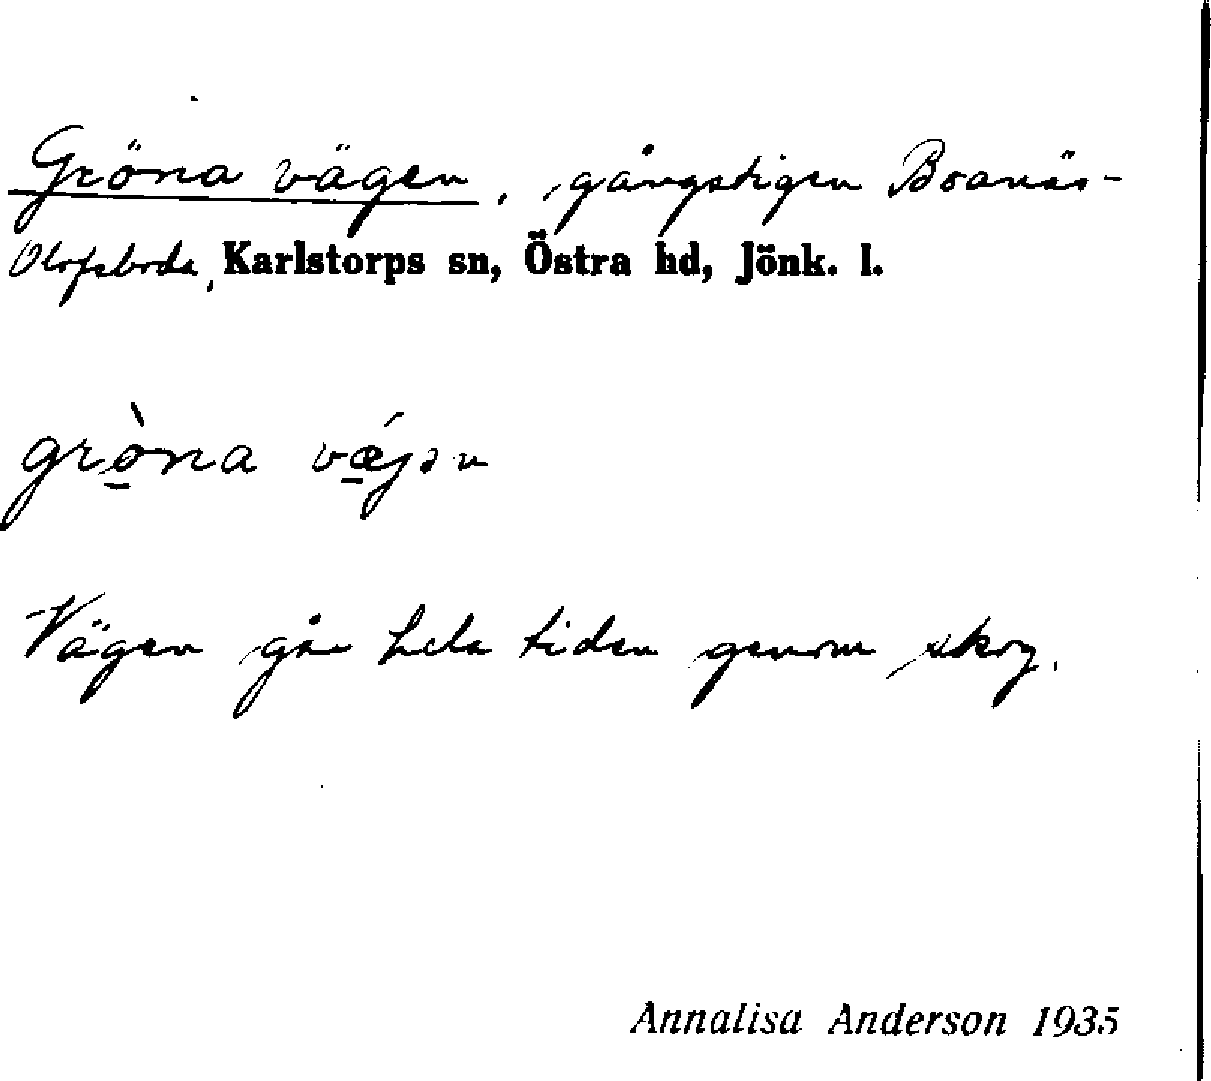 Gröna vägen, gångstigen Boanäs-
Olofsboda, Karlstorps sn, Östra hd, Jönk. l.
grö̀na vǽjən
Vägen går hela tiden genom skog.
Annalisa Anderson 1935